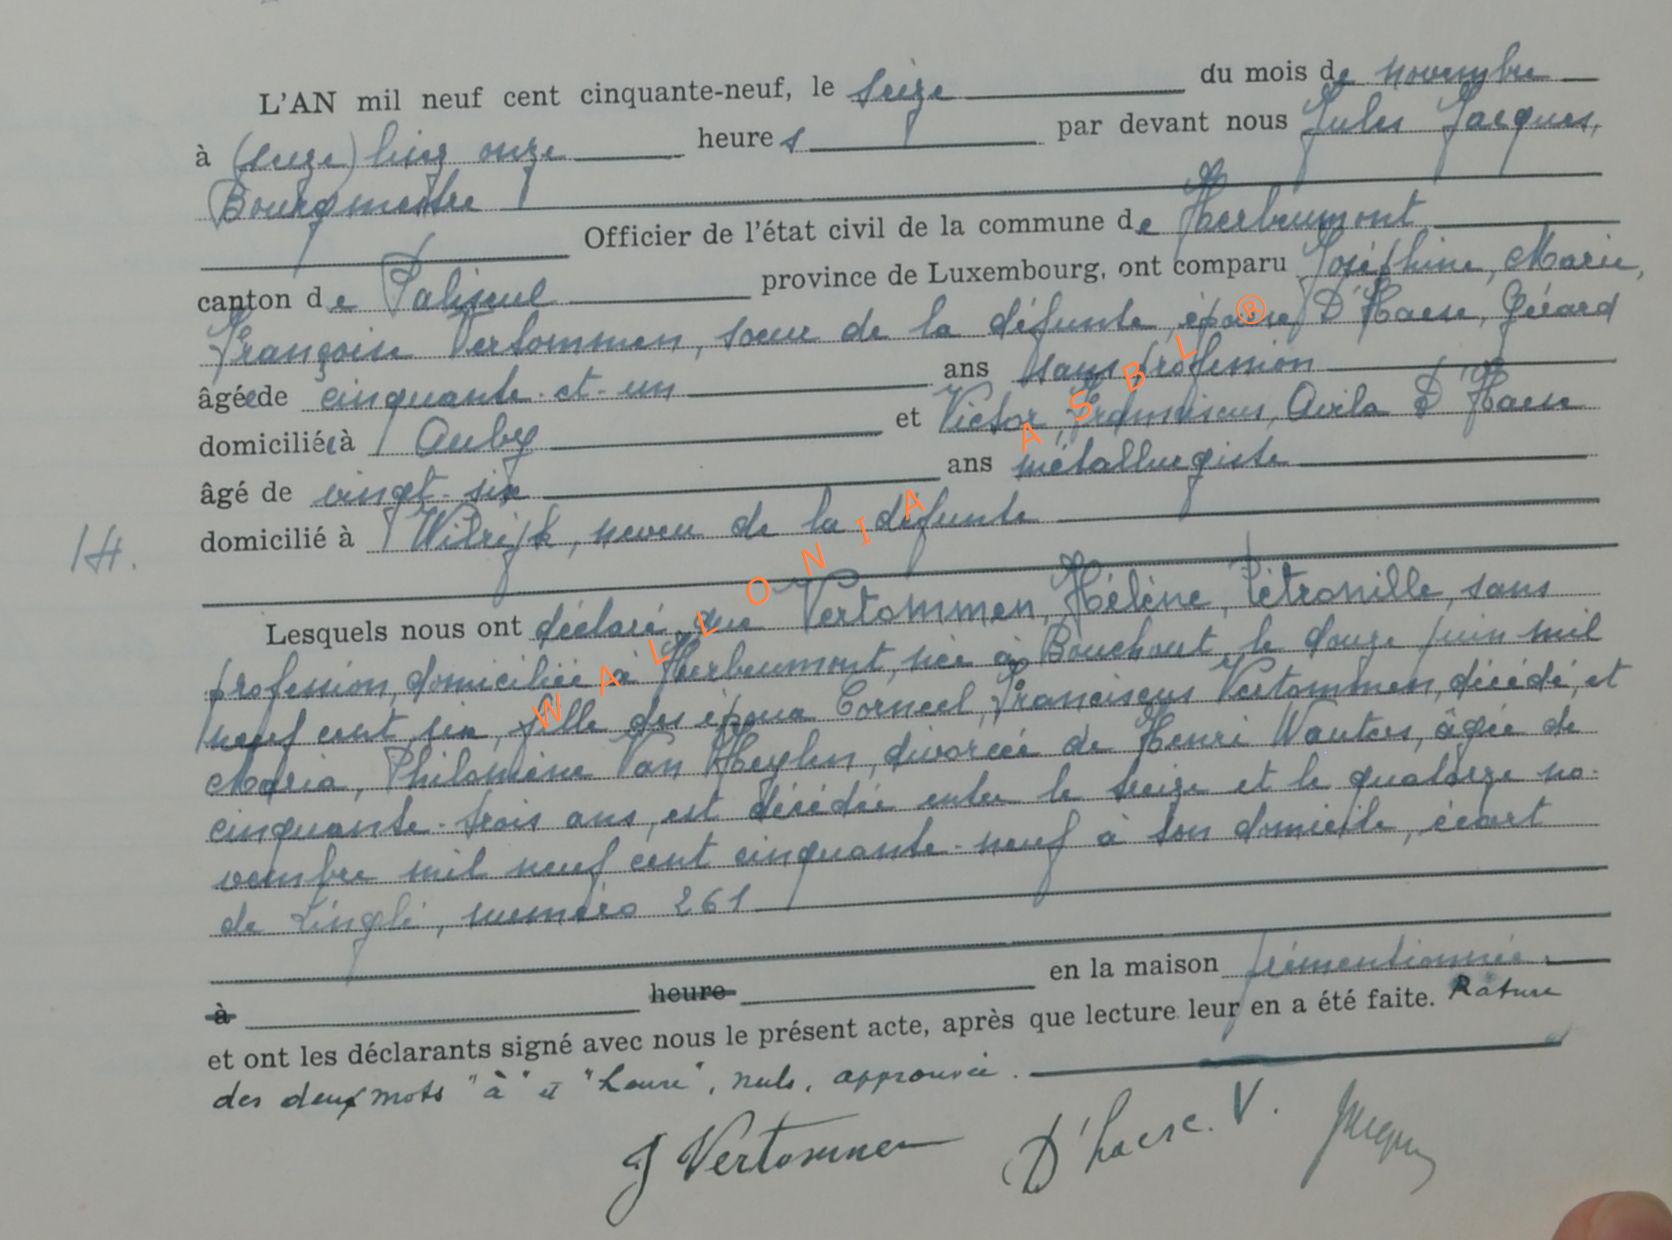 L'AN mil neuf cent cinquante-neuf, le seize du mois de novembre
à (seize) lisez onze heures par devant nous Jules Jacques,
Bourgmestre
Officier de l'état civil de la commune de Herbeumont
canton de Paliseul province de Luxembourg, ont comparu Joséphine, Marie,
Françoise Vertommen, soeur de la défunte, épouse D'Haese, Gérard
âgée de cinquante-et-un ans sans profession
domiciliée à Auby et Victor, Franciscus, Avila D'Haese
âgé de vingt-six ans métallurgiste
domicilié à Wilrijk, neveu de la défunte
14.
Lesquels nous ont déclaré que Vertommen, Hélène, Pétronille, sans
profession, domiciliée à Herbeumont, née à Bouchout, le douze juin mil
neuf cent six, fille des époux Corneel, Franciscus Vertommen, décédé, et
Maria, Philomène Van Heylen, divorcée de Henri Wauters, âgée de
cinquante-trois ans, est décédée entre le treize et le quatorze no-
vembre mil neuf cent cinquante-neuf à son domicile, écart
de Linglé, numéro 261
à heure en la maison prémentionnée.
et ont les déclarants signé avec nous le présent acte, après que lecture leur en a été faite. Rature
des deux mots "à" et "heure", nuls, approuvée.
J Vertommen D'haese. V. Jacques
WALLONIA ASBL ®